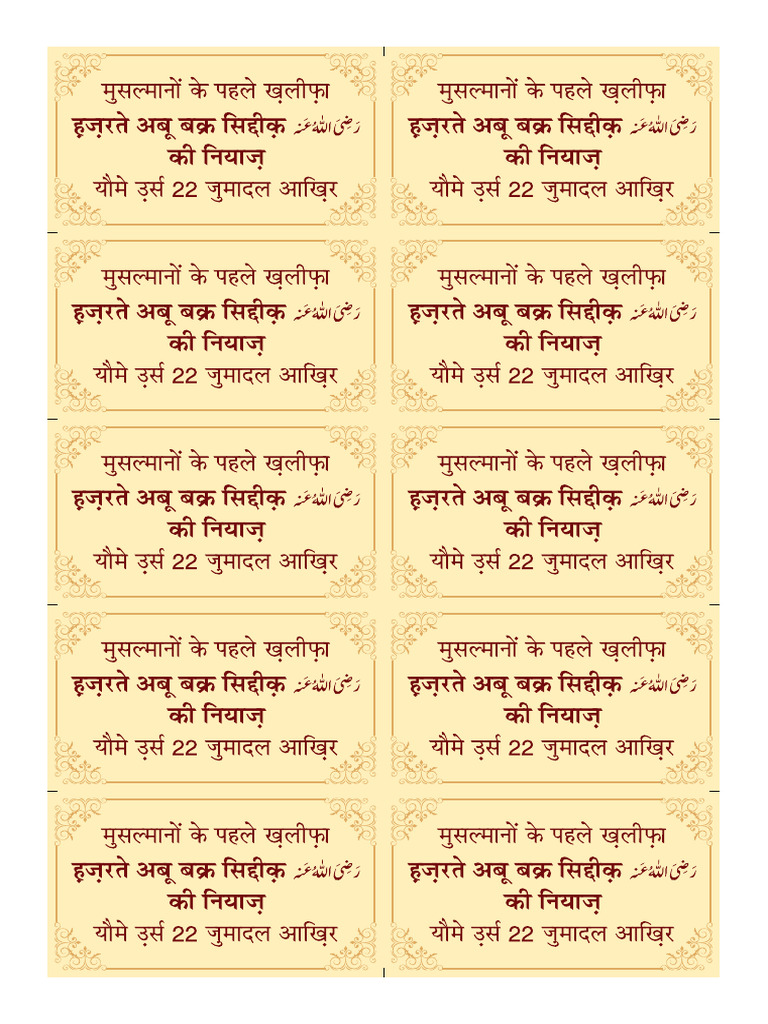 मुसल्मानों के पहले ख़लीफ़ा
ह़ज़रते अबू बक्र सिद्दीक़ رَضِیَ اللهُ عَنہ
की नियाज़
यौमे उ़र्स 22 जुमादल आख़िर
मुसल्मानों के पहले ख़लीफ़ा
ह़ज़रते अबू बक्र सिद्दीक़ رَضِیَ اللهُ عَنہ
की नियाज़
यौमे उ़र्स 22 जुमादल आख़िर
मुसल्मानों के पहले ख़लीफ़ा
ह़ज़रते अबू बक्र सिद्दीक़ رَضِیَ اللهُ عَنہ
की नियाज़
यौमे उ़र्स 22 जुमादल आख़िर
मुसल्मानों के पहले ख़लीफ़ा
ह़ज़रते अबू बक्र सिद्दीक़ رَضِیَ اللهُ عَنہ
की नियाज़
यौमे उ़र्स 22 जुमादल आख़िर
मुसल्मानों के पहले ख़लीफ़ा
ह़ज़रते अबू बक्र सिद्दीक़ رَضِیَ اللهُ عَنہ
की नियाज़
यौमे उ़र्स 22 जुमादल आख़िर
मुसल्मानों के पहले ख़लीफ़ा
ह़ज़रते अबू बक्र सिद्दीक़ رَضِیَ اللهُ عَنہ
की नियाज़
यौमे उ़र्स 22 जुमादल आख़िर
मुसल्मानों के पहले ख़लीफ़ा
ह़ज़रते अबू बक्र सिद्दीक़ رَضِیَ اللهُ عَنہ
की नियाज़
यौमे उ़र्स 22 जुमादल आख़िर
मुसल्मानों के पहले ख़लीफ़ा
ह़ज़रते अबू बक्र सिद्दीक़ رَضِیَ اللهُ عَنہ
की नियाज़
यौमे उ़र्स 22 जुमादल आख़िर
मुसल्मानों के पहले ख़लीफ़ा
ह़ज़रते अबू बक्र सिद्दीक़ رَضِیَ اللهُ عَنہ
की नियाज़
यौमे उ़र्स 22 जुमादल आख़िर
मुसल्मानों के पहले ख़लीफ़ा
ह़ज़रते अबू बक्र सिद्दीक़ رَضِیَ اللهُ عَنہ
की नियाज़
यौमे उ़र्स 22 जुमादल आख़िर